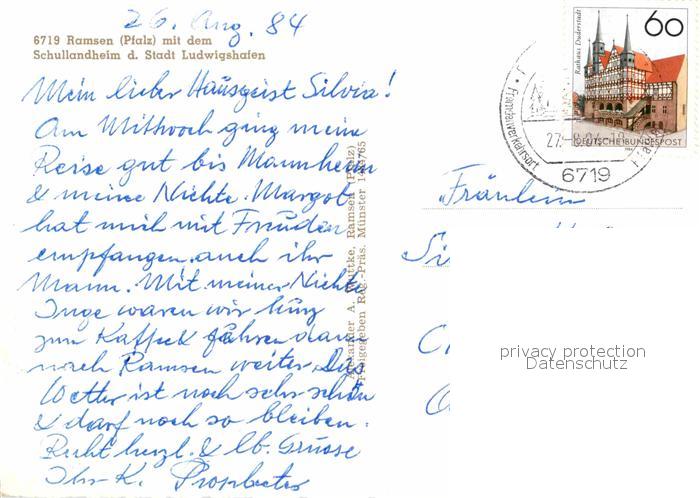 26. Aug. 84
6719 Ramsen (Pfalz) mit dem
Schullandheim d. Stadt Ludwigshafen
Mein lieber Hausgeist Silvia!
Am Mittwoch ging meine
Reise gut bis Mannheim
& meine Nichte Margot
hat mich mit Freuden
empfangen, auch ihr
Mann. Mit meiner Nichte
Inge waren wir kurz
zum Kaffee & fuhren dann
nach Ramsen weiter. Das
Wetter ist noch sehr schön
& darf noch so bleiben.
Recht herzl. & lb. Grüsse
Ihr K.
Alexander A. Wuttke, Ramsen (Pfalz)
Freigegeben Reg.-Präs. Münster
60
Rathaus Duderstadt
DEUTSCHE BUNDESPOST
Fremdenverkehrsort
6719
Fräulein
privacy protection
Datenschutz